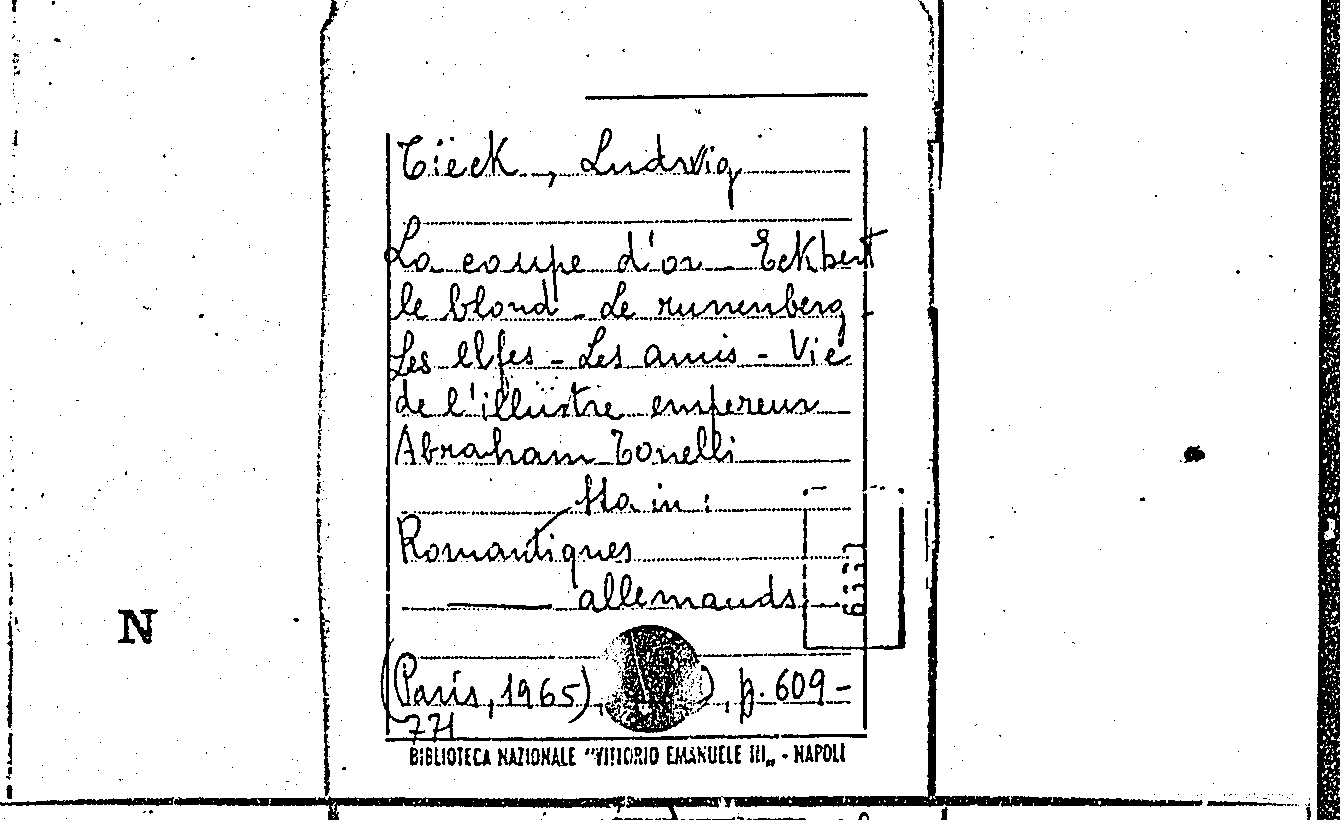 Tieck, Ludwig
La coupe d'or - Eckbert
le blond - Le runenberg -
Les elfes - Les amis - Vie
de l'illustre empereur
Abraham Tonelli
Sta in:
Romantiques
allemands
(Paris, 1965), p. 609-
771
BIBLIOTECA NAZIONALE "VITTORIO EMANUELE III„ - NAPOLI
N